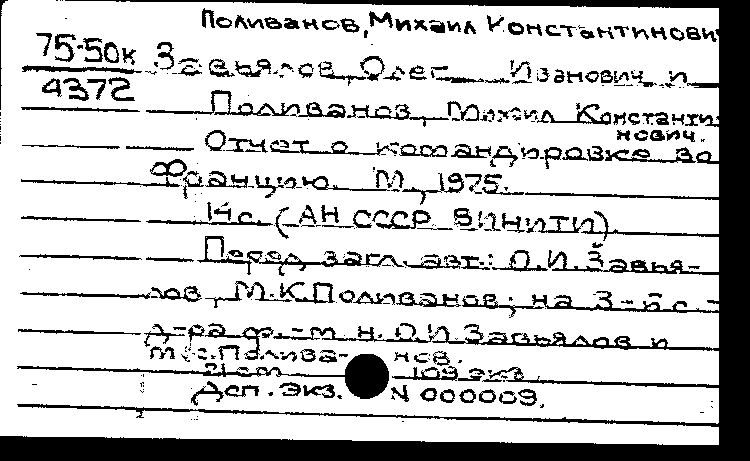 Поливанов, Михаил Константинови
75-50к Завьялов, Олег Иванович и
4372
Поливанов, Михаил Константи-
нович.
Отчет о командировке во
Францию. М., 1975.
14с. (АН СССР ВИНИТИ).
Перед загл. авт.: О.И.Завья-
лов, М.К.Поливанов; на 3-й с
д-ра ф.-м н. О.И.Завьялов и
М.К.Полива- нов.
21 cm 109 экз.
Дсп. Экз. N 000009.